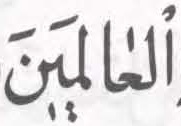 اَلْعَالَمَيَنَ